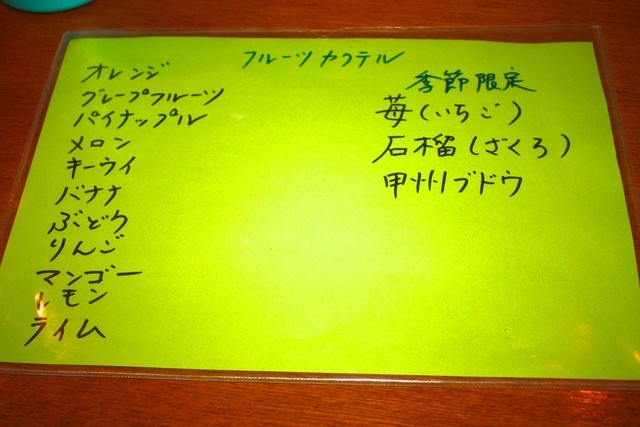 フルーツカクテル
オレンジ
グレープフルーツ
パイナップル
メロン
キーウイ
バナナ
ぶどう
りんご
マンゴー
レモン
ライム
季節限定
苺(いちご)
石榴(ざくろ)
甲州ブドウ